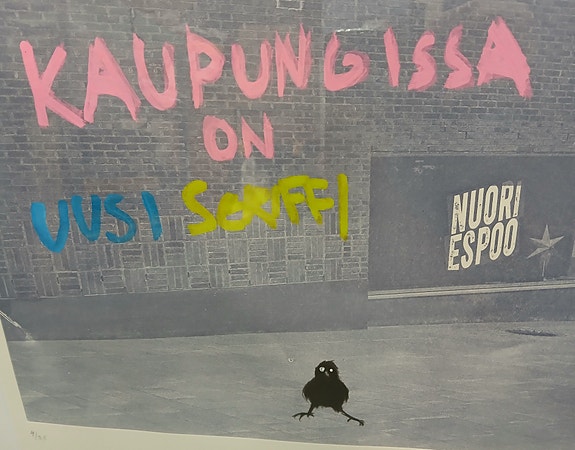 KAUPUNGISSA
ON
UUSI SERIFFI
NUORI
ESPOO